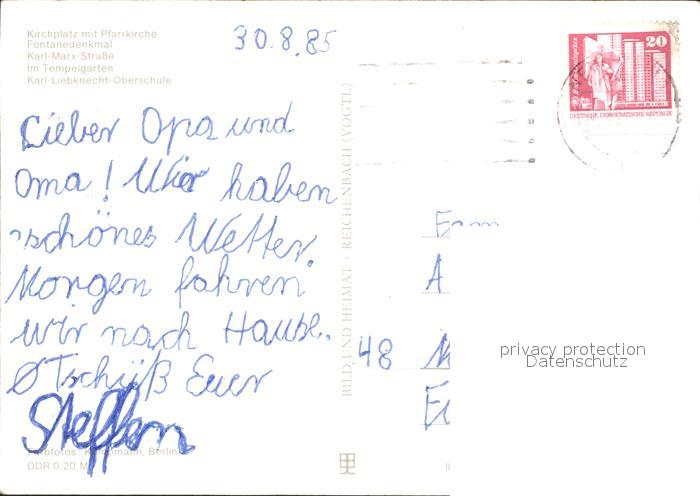 Kirchplatz mit Pfarrkirche
Fontanedenkmal
Karl-Marx-Straße
Im Tempelgarten
Karl-Liebknecht-Oberschule
30.8.85
Lieber Opa und
Oma! Wir haben
schönes Wetter.
Morgen fahren
wir nach Hause.
Tschüß Euer
Steffen
Berlin
DDR 0,20 M
BILD UND HEIMAT · REICHENBACH (VOGTL)
20
DEUTSCHE DEMOKRATISCHE REPUBLIK
A
48 M
privacy protection
Datenschutz